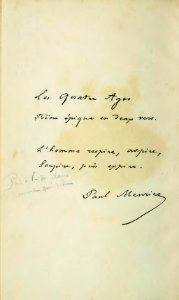 Les Quatre Ages
Poème épique en deux vers.
L'homme respire, aspire,
Soupire, puis expire.
Paul Meurice